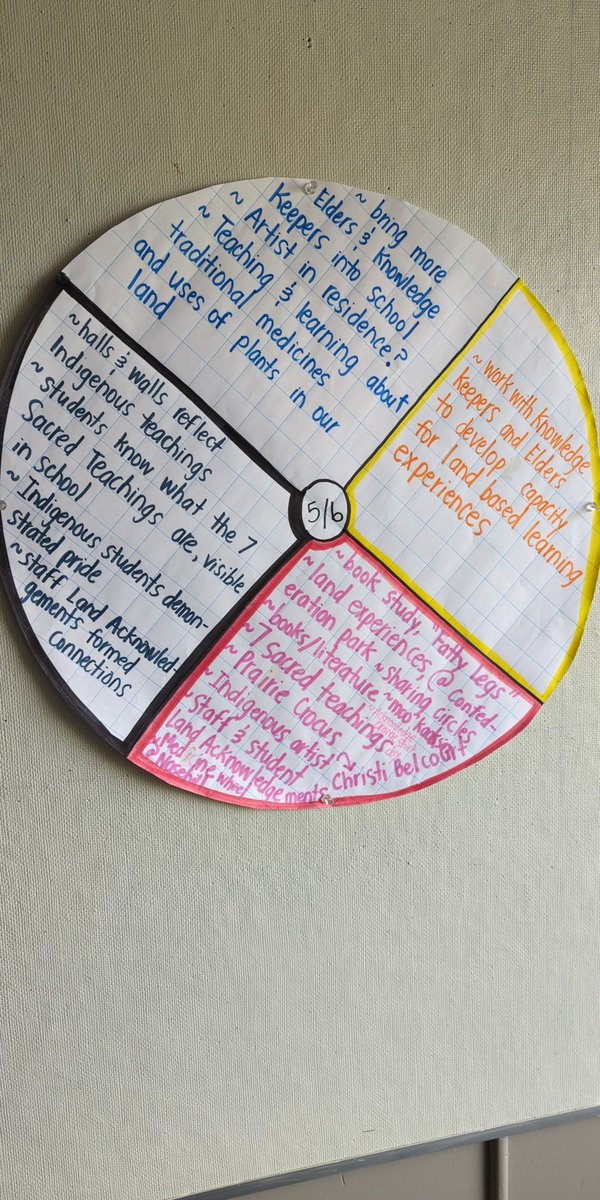 ~ bring more
Elders & Knowledge
Keepers into school
~ Artist in residence?
~ Teaching & learning about
traditional medicines
and uses of plants in our
land
~ work with Knowledge
Keepers and Elders
to develop capacity
for land based learning
experiences
5/6
~ halls & walls reflect
Indigenous teachings
~ students know what the 7
Sacred Teachings are, visible
in school
~ Indigenous students demon-
strated pride
~ staff Land Acknowled-
gements formed
connections
~ book study, "Fatty Legs"
~ land experiences, @ Confed-
eration park ~ sharing circles
~ books/literature ~
~ 7 Sacred teachings
~ Prairie Crocus
~ Indigenous artist ~
Christi Belcourt
~ Staff & student
Land Acknowledgements
~ Medicine wheel
@ Nosehill